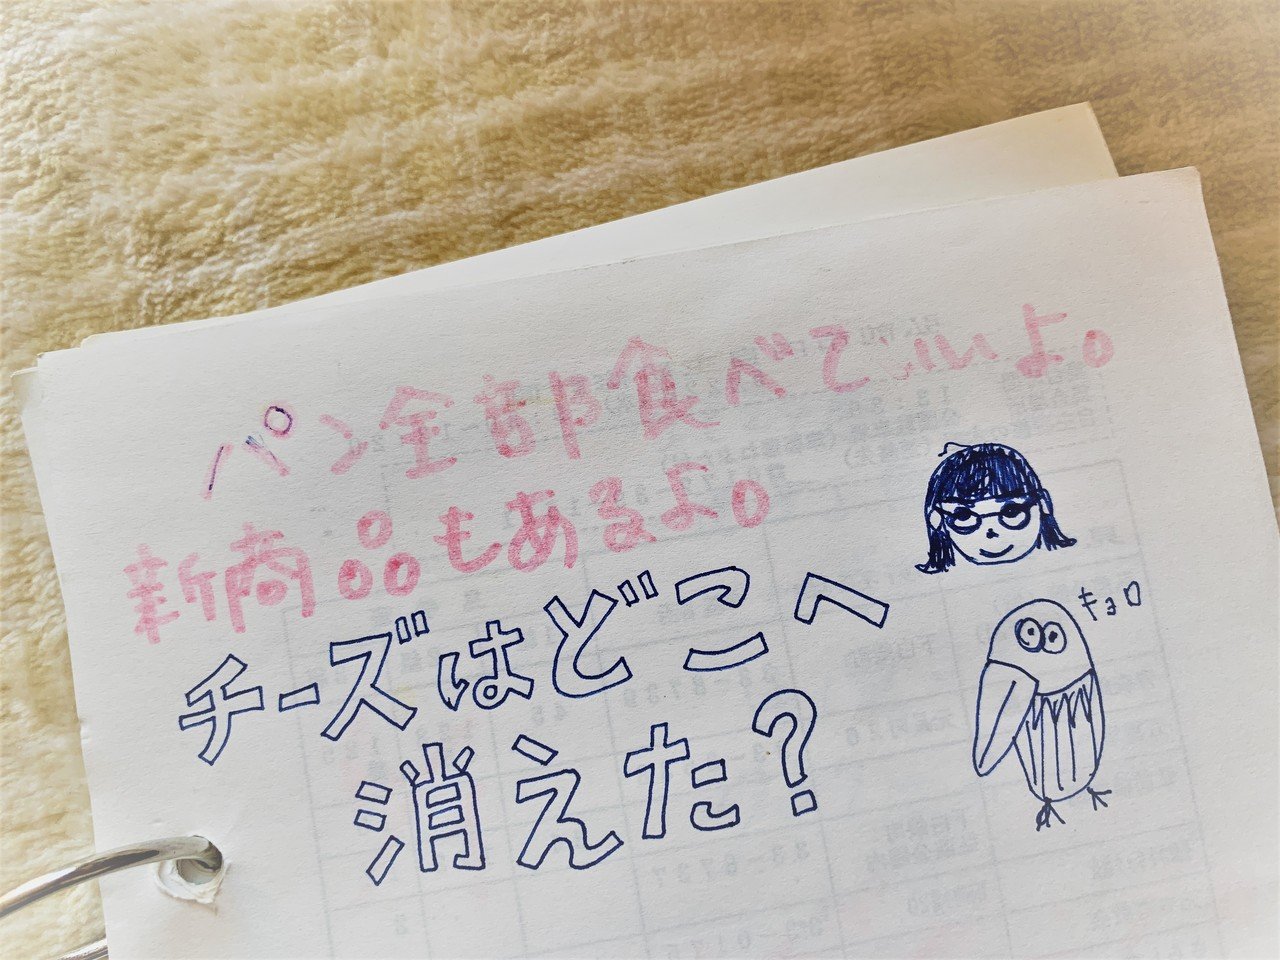 パン全部食べていいよ。
新商品もあるよ。
チーズはどこへ
消えた?
キョロ